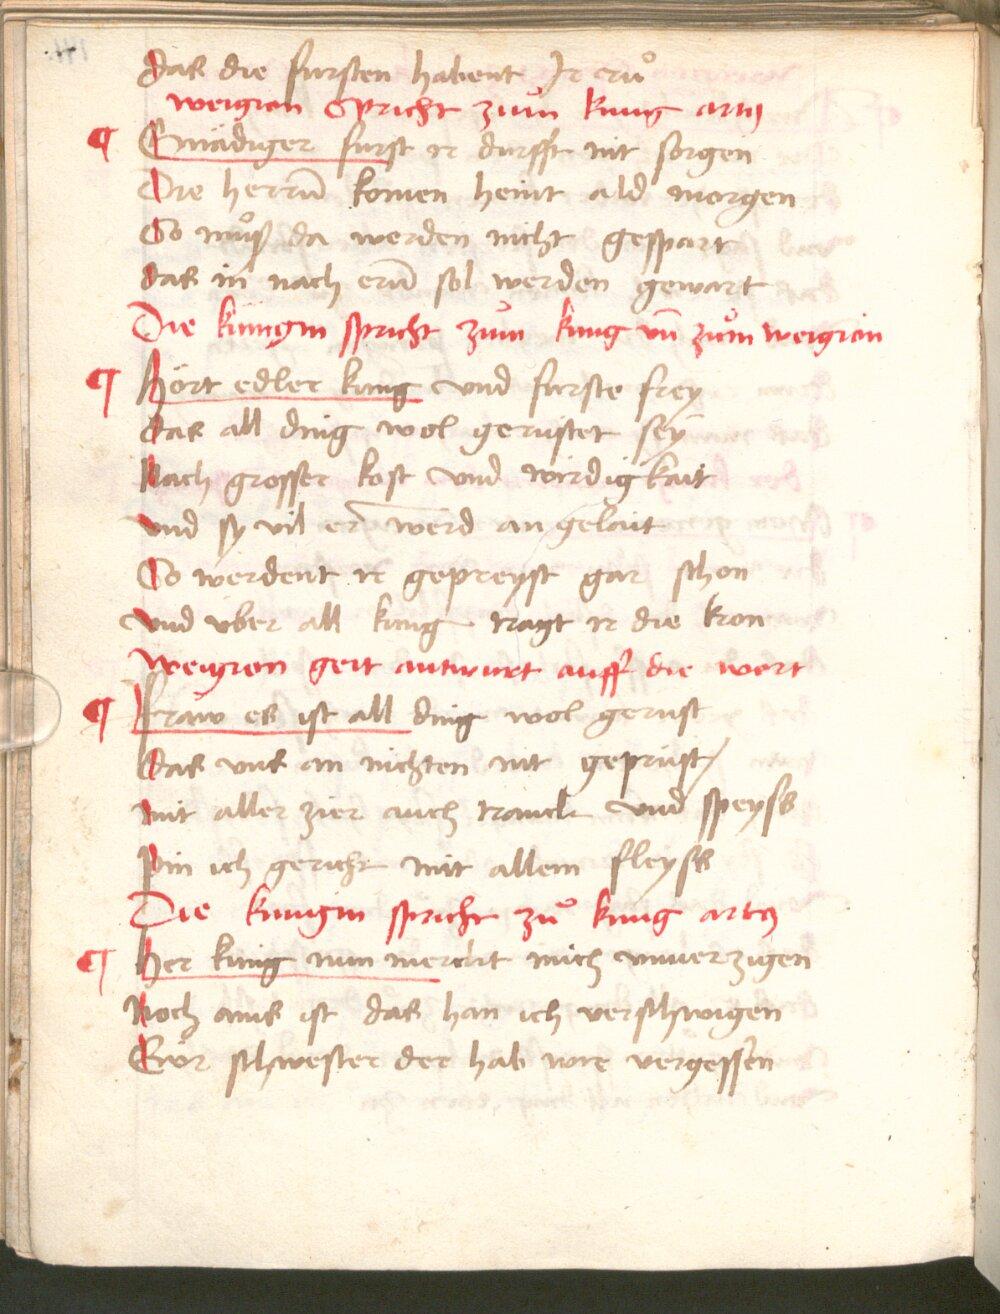 das die fursten habent Ir ruͦ
weigion Spricht zum kung artus
¶ Gnädiger furst ir durfft nit sorgen
Die herrn̄ komen heint ald morgen
So muͦß da werden nicht gespart
das in nach ern̄ sol werden gewart
Die küngin spricht zum kung vn̄ zuͦm weigion
¶ Hört edler kung vnd furste frey
das all ding wol gerüstet sey
Nach grosser kost vnd wirdigkait
vnd sy vil er werd an gelait
So werdent ir gepreyst gar schon
vnd vber all küng tragt ir die kron
weigion geit antwurt auff die wort
¶ fraw es ist all ding wol gerust
das vns an nichten nit geprüst
mit aller zier auch tranck vnd speyss
Pin ich gericht mit allem fleyss
Die kungin spricht zuͦ kung artus
¶ Her küng nun merckt mich vnuerzigen
Noch ains ist das han ich verschwigen
Ewr schwester der hab wir vergessen